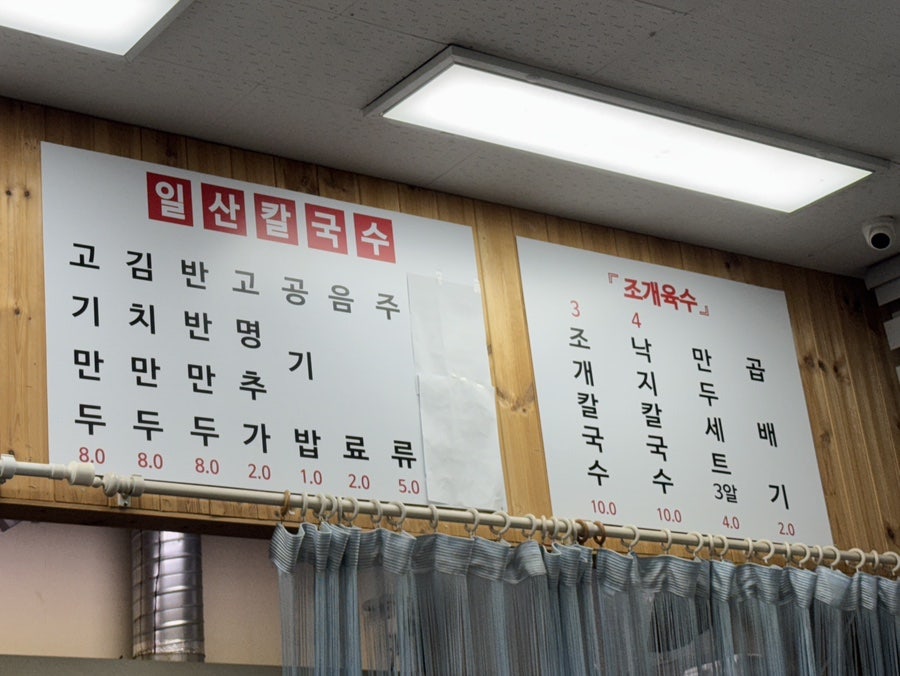 일산칼국수
고기만두 8.0
김치만두 8.0
반반만두 8.0
고명추가 2.0
공기밥 1.0
음료 2.0
주류 5.0
『조개육수』
3 조개칼국수 10.0
4 낙지칼국수 10.0
만두세트 3알 4.0
곱배기 2.0